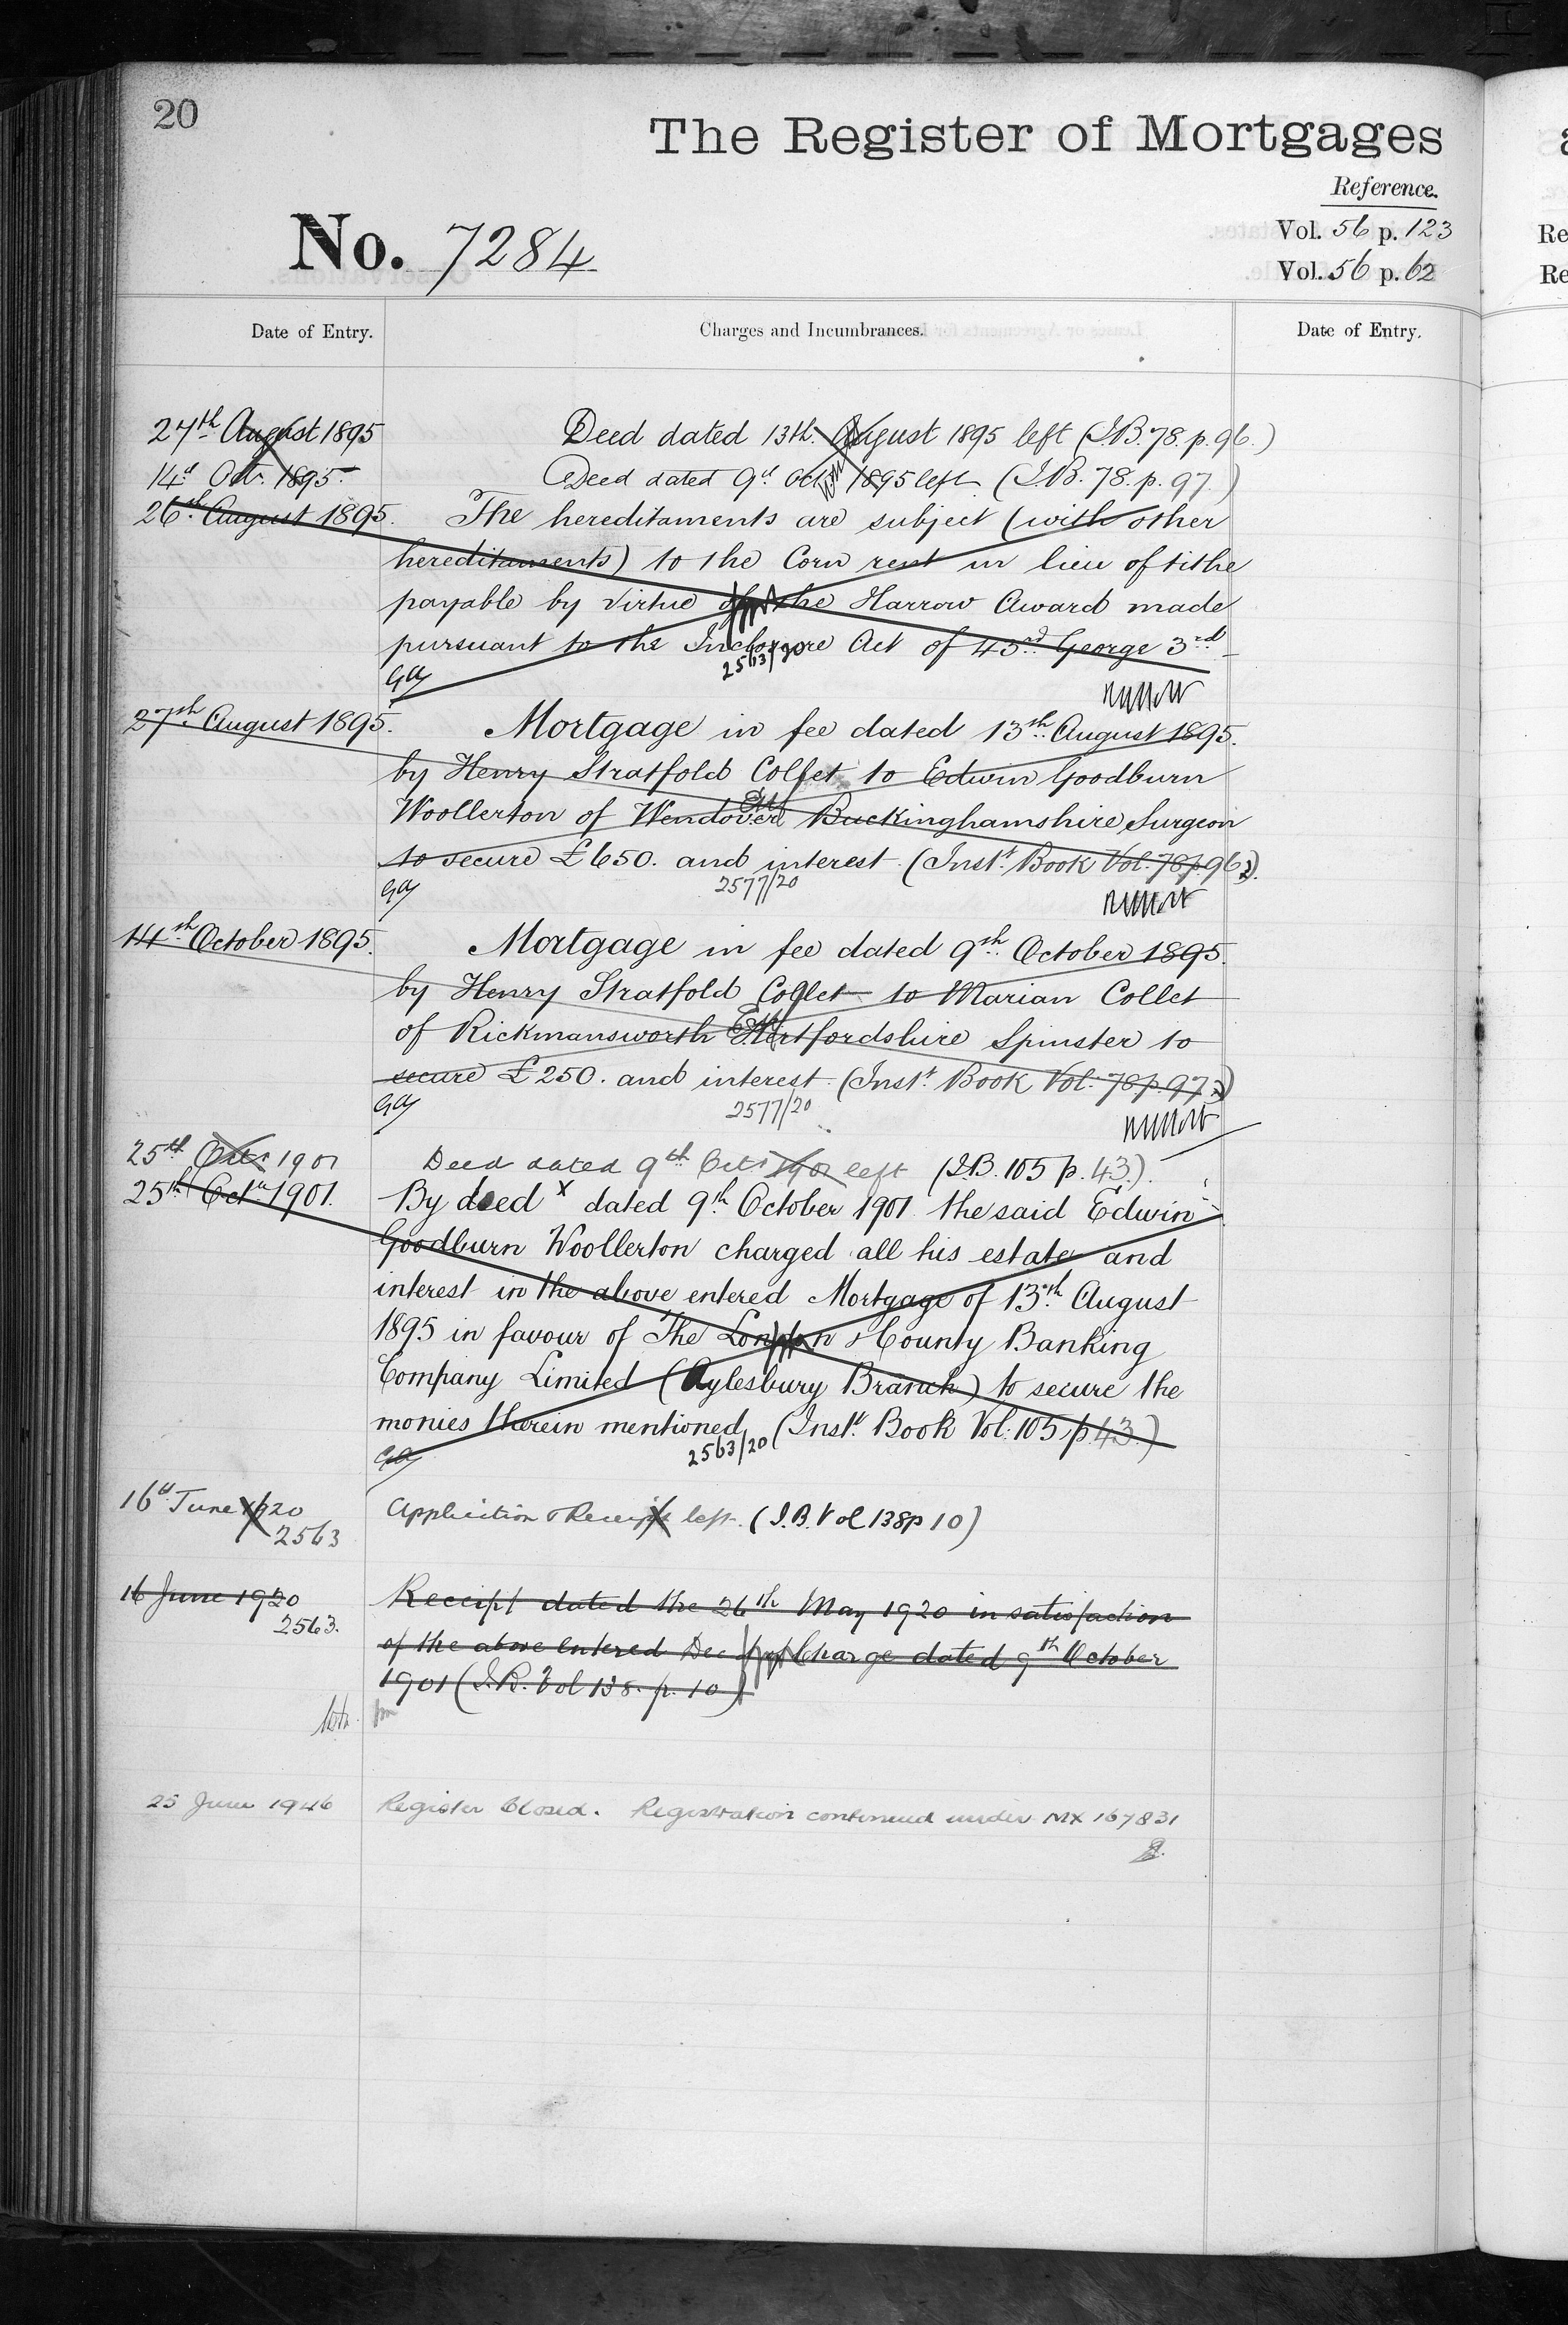 20
The Register of Mortgages
Reference.
No. 7284
Vol. 56 p. 123
Vol. 56 p. 62
Date of Entry. Charges and Incumbrances. Date of Entry.
27th August 1895 Deed dated 13th August 1895 left (I.B. 78. p. 96.)
14th Oct. 1895 Deed dated 9th Oct 1895 left (I.B. 78. p. 97.)
26th August 1895. The hereditaments are subject (with other
hereditaments) to the Corn rent in lieu of tithe
payable by virtue of the Harrow Award made
pursuant to the Inclosure Act of 43rd George 3rd
2563/20
27th August 1895. Mortgage in fee dated 13th August 1895.
by Henry Stratfold Collet to Edwin Goodburn
Woollerton of Wendover Buckinghamshire Surgeon
to secure £650. and interest (Inst. Book Vol. 78 p. 96.)
2577/20
14th October 1895. Mortgage in fee dated 9th October 1895.
by Henry Stratfold Collet to Marian Collet
of Rickmansworth Hertfordshire Spinster to
secure £250. and interest (Inst. Book Vol. 78 p. 97.)
2577/20
25th Oct. 1901 Deed dated 9th Oct. 1901 left (I.B. 105 p. 43.)
25th Oct. 1901. By deed x dated 9th October 1901 the said Edwin
Goodburn Woollerton charged all his estate and
interest in the above entered Mortgage of 13th August
1895 in favour of The London & County Banking
Company Limited (Aylesbury Branch) to secure the
monies therein mentioned (Inst. Book Vol: 105 p. 43.)
2563/20
16th June 1920 Application & Receipt left. (I.B. Vol 138 p 10)
2563
16 June 1920 Receipt dated the 26th May 1920 in satisfaction
2563. of the above entered Deed of Charge dated 9th October
1901 (I.B. Vol 138. p. 10)
25 June 1946 Register Closed. Registration continued under MX 167831